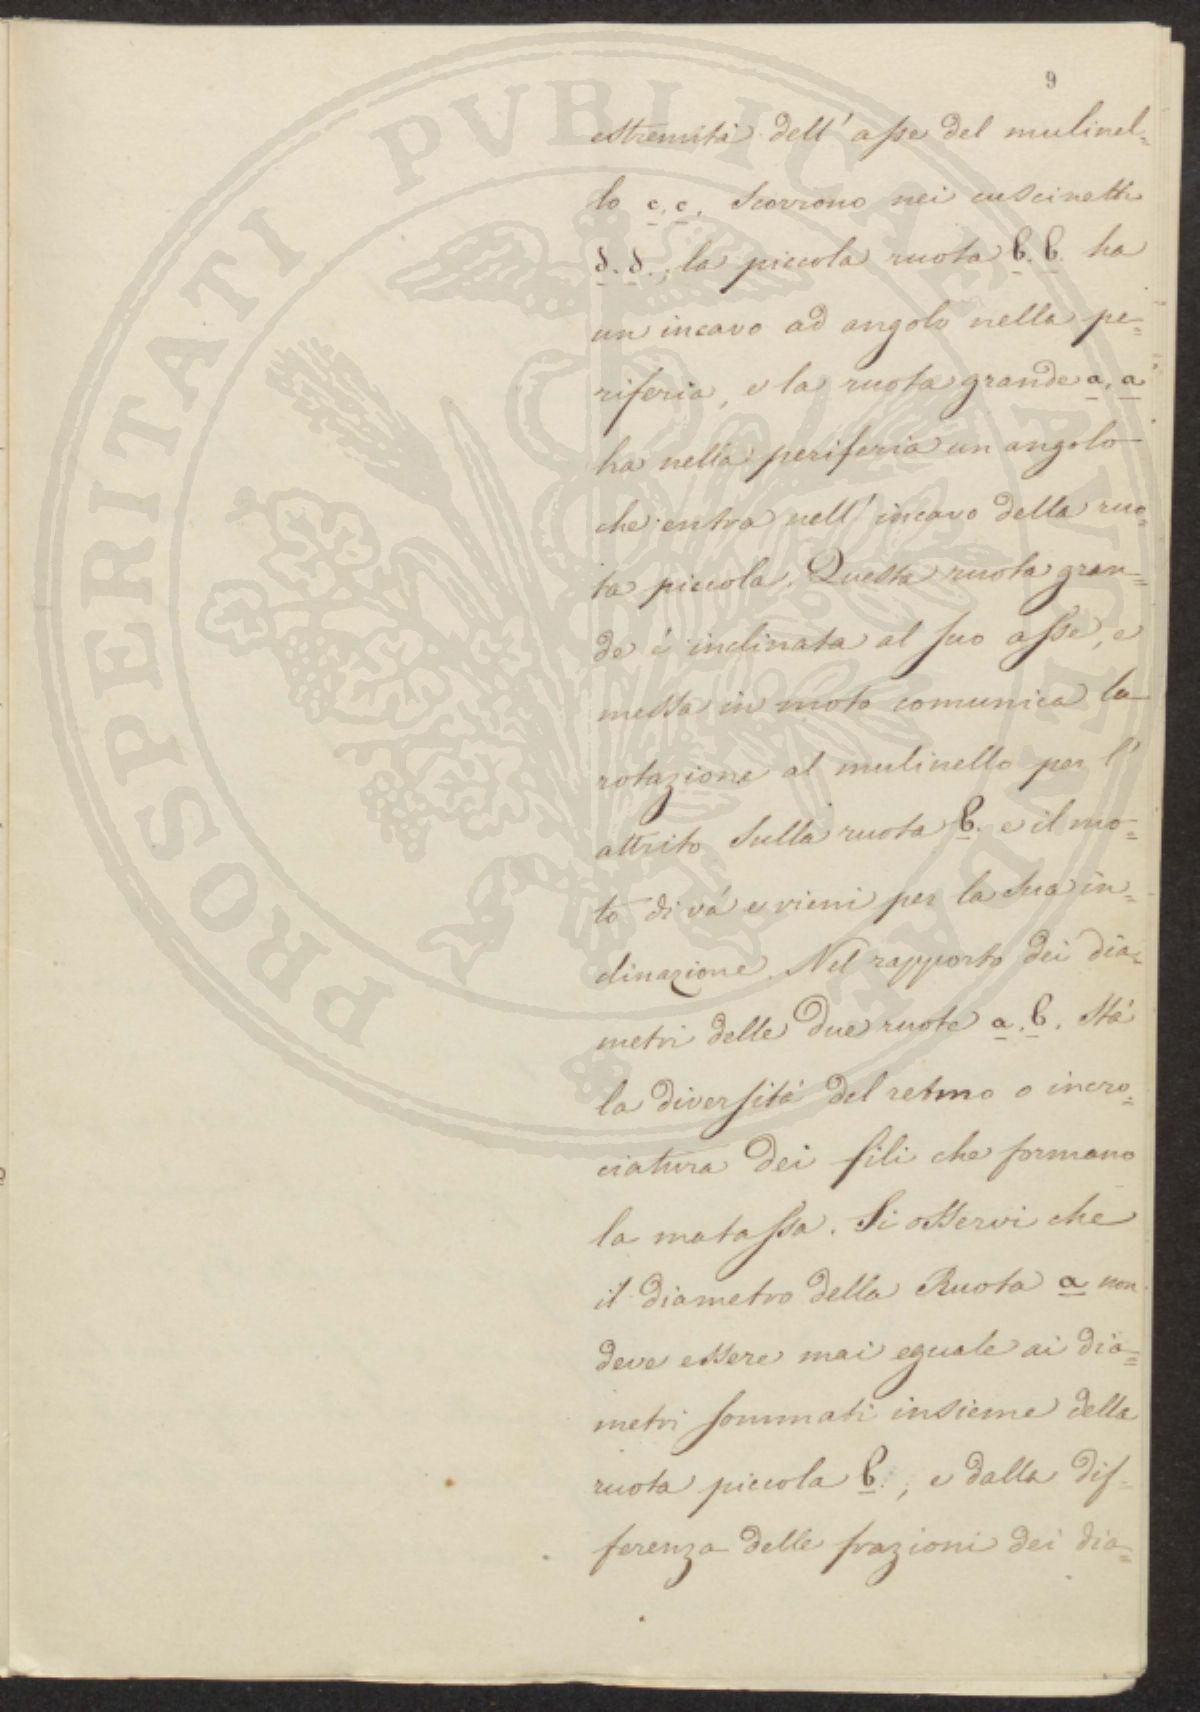 9
estremità dell' asse del mulinel=
lo c. c. scorrono nei cuscinetti
d. d., la piccola ruota b. b. ha
un incavo ad angolo nella pe=
riferia, e la ruota grande a. a
ha nella periferia un angolo
che entra nell' incavo della ruo=
ta piccola. Questa ruota gran=
de é inclinata al suo asse, e
messa in moto comunica la
rotazione al mulinello per l'
attrito sulla ruota b. e il mo=
to di vá e vieni per la sua in=
clinazione. Nel rapporto dei dia=
metri delle due ruote a. b. stá
la diversitá del retmo o incro=
ciatura dei fili che formano
la matassa. Si osservi che
il diametro della Ruota a non
deve essere mai eguale ai dia=
metri sommati insieme della
ruota piccola b., e dalla dif=
ferenza delle frazioni dei dia=
PROSPERITATI PVBLICAE AVGENDAE